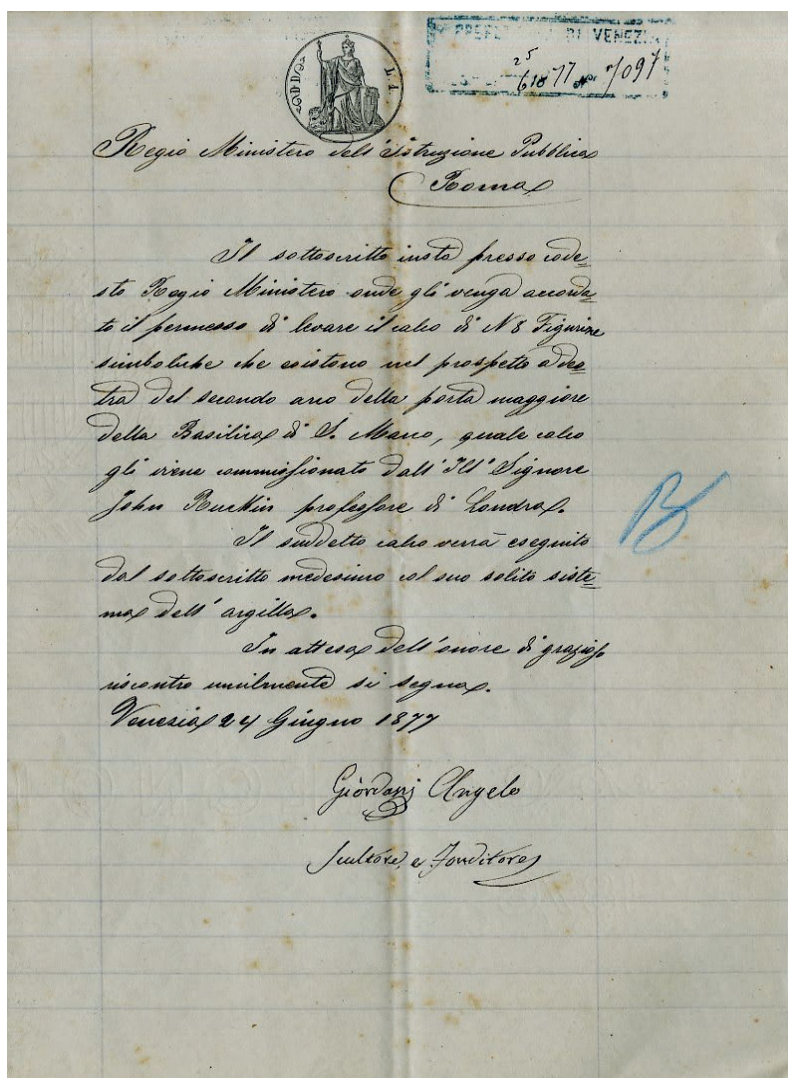 L. 1.
PREFETTURA DI VENEZIA
25
6 1877 N° 7097
Regio Ministero dell' Istruzione Pubblica
Roma
Il sottoscritto insta presso code-
sto Regio Ministero onde gli venga accorda-
to il permesso di levare il calco di N 8 Figurine
simboliche che esistono nel prospetto a des-
tra del secondo arco della porta maggiore
della Basilica di S. Marco, quale calco
gli viene commissionato dall' Ill' Signore
John Ruskin professore di Londra.
Il suddetto calco verrà eseguito
dal sottoscritto medesimo col suo solito siste-
ma dell' argilla.
In attesa dell' onore di grazioso
riscontro umilmente si segna.
Venezia 24 Giugno 1877
Giordani Angelo
Scultore, e Fonditore